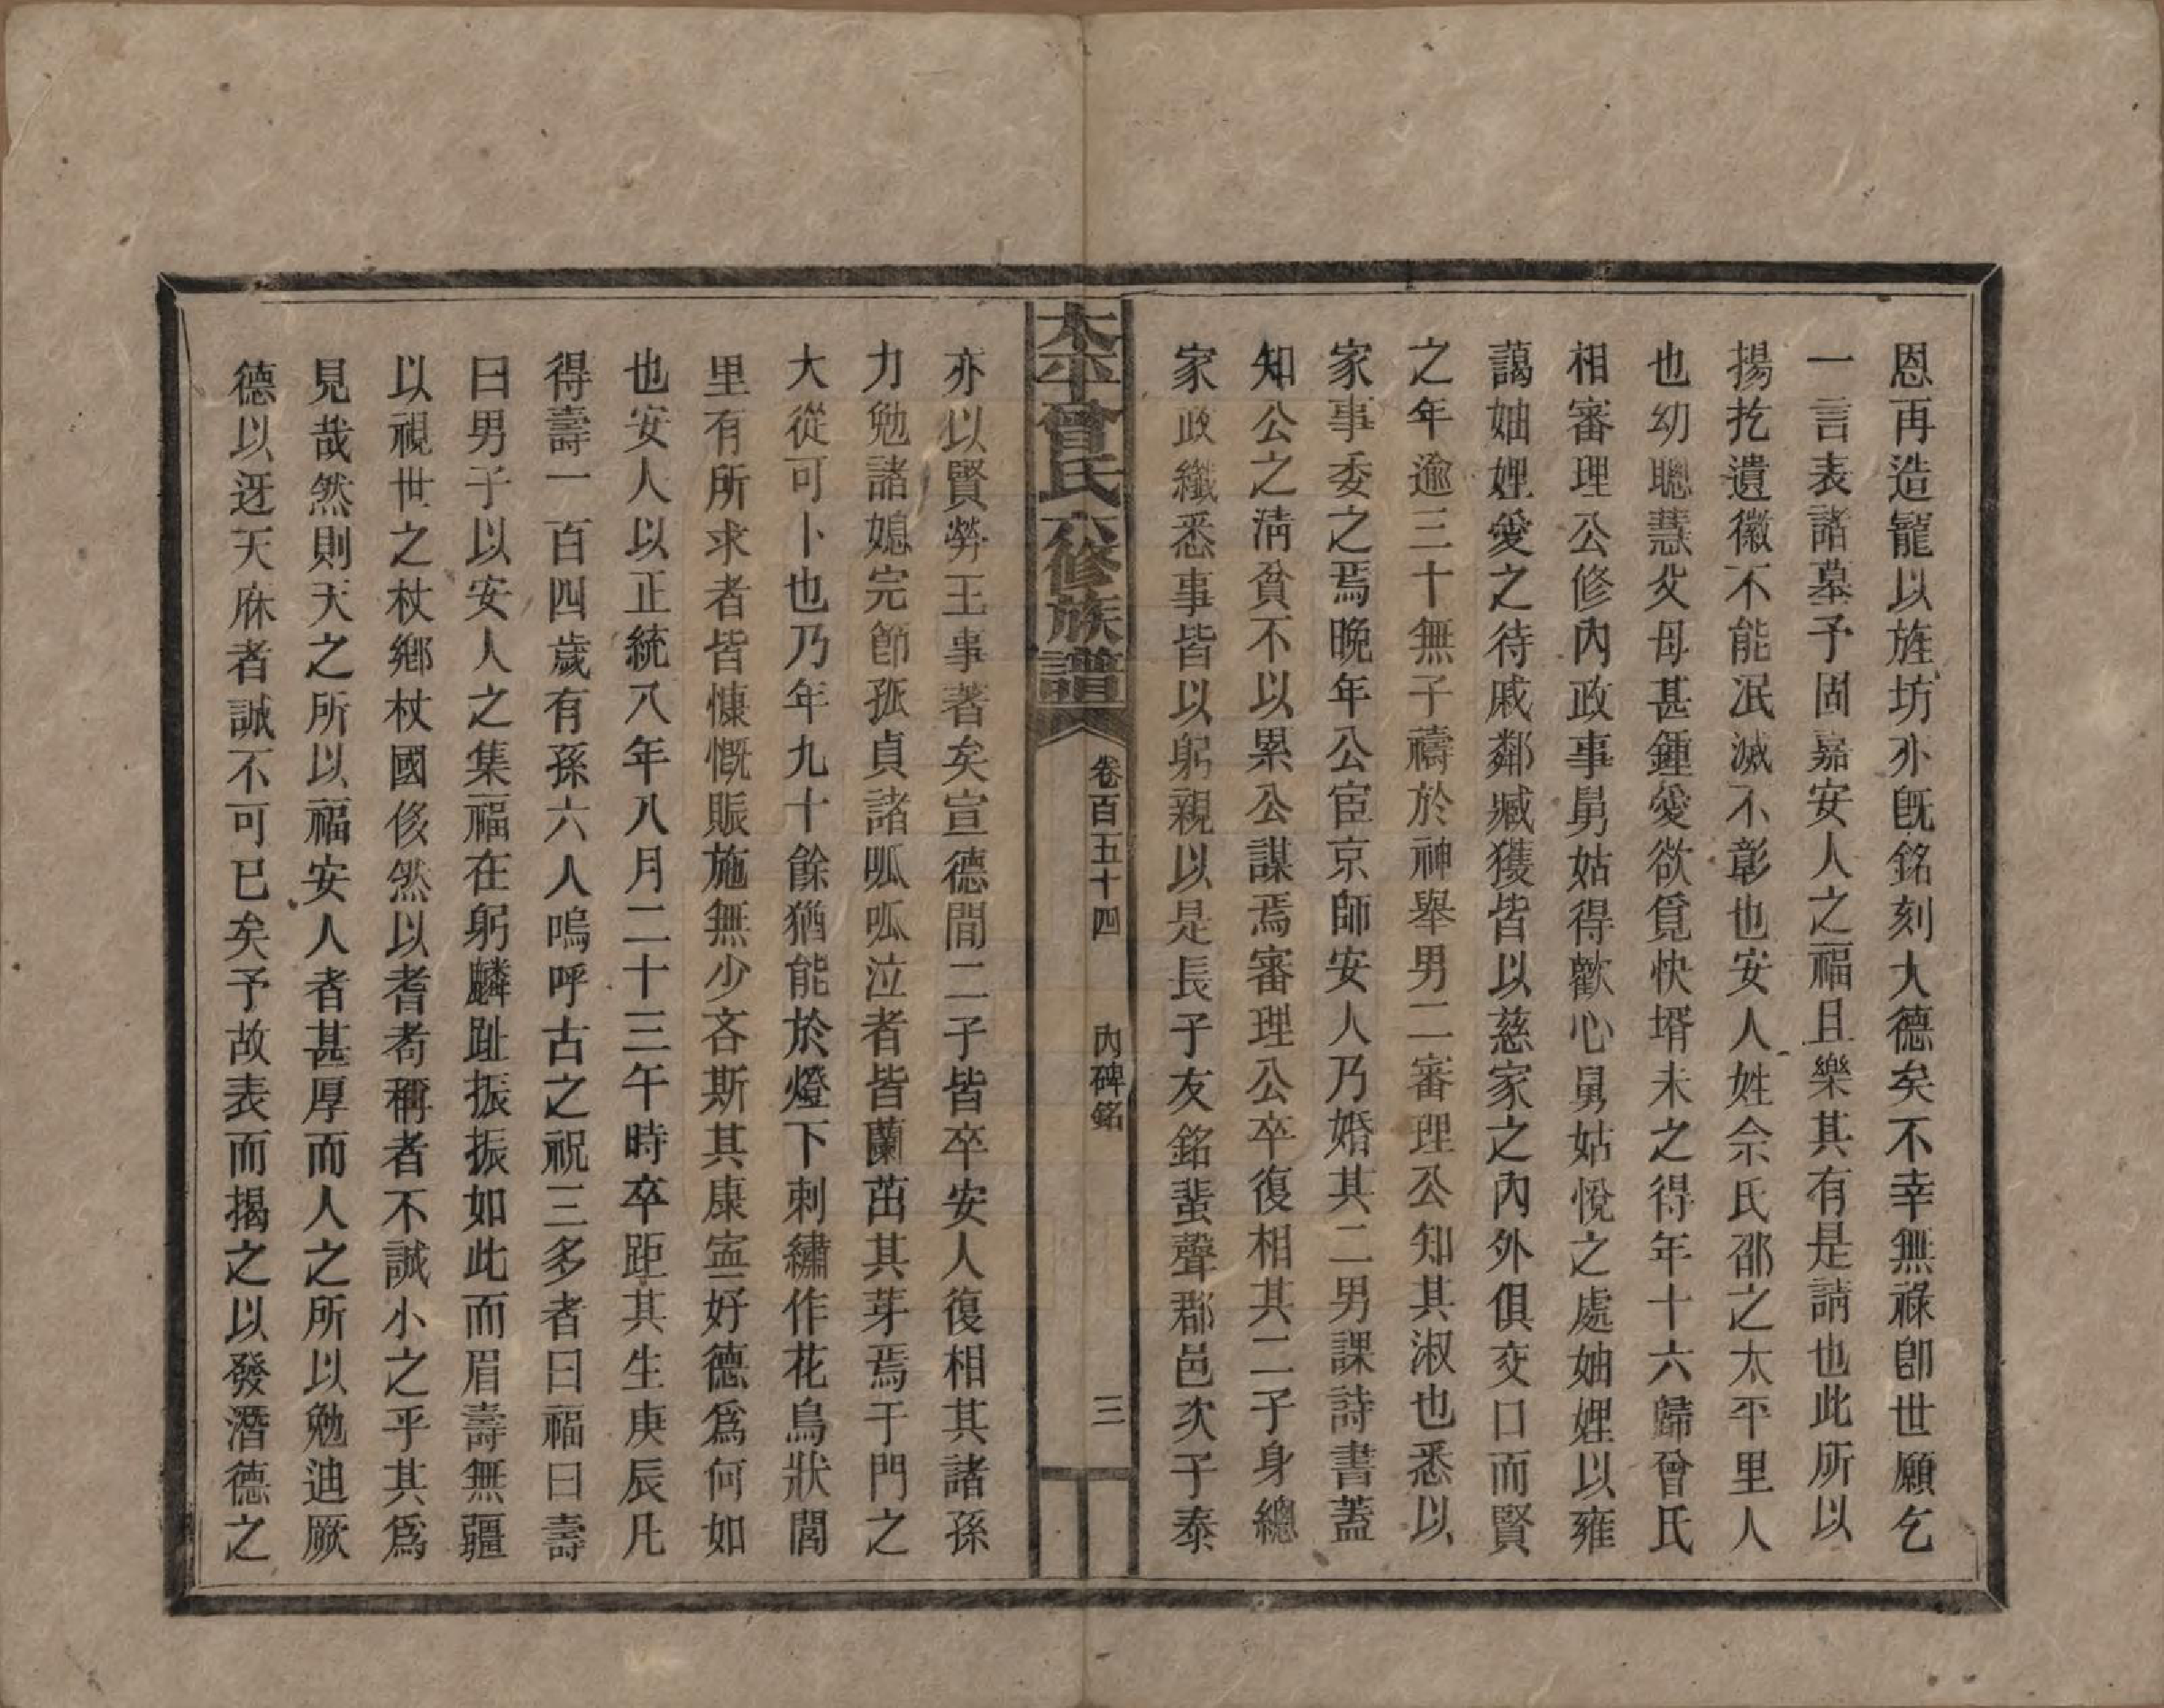 恩再造寵以旌坊亦旣銘刻大德矣不幸無祿卽世願乞
一言表諸墓予固嘉安人之福且樂其有是請也此所以
揚扢遺徽不能泯滅不彰也安人姓佘氏邵之太平里人
也幼聰慧父母甚鍾愛欲覓快壻未之得年十六歸曾氏
相審理公修內政事舅姑得歡心舅姑悅之處妯娌以雍
藹妯娌愛之待戚鄰臧獲皆以慈家之內外俱交口而賢
之年逾三十無子禱於神舉男二審理公知其淑也悉以
家事委之焉晚年公宦京師安人乃婚其二男課詩書蓋
知公之清貧不以累公謀焉審理公卒復相其二子身總
家政纖悉事皆以躬親以是長子友銘蜚聲郡邑次子泰
太平曾氏六修族譜
卷百五十四
內碑銘
三
亦以賢勞王事著矣宣德間二子皆卒安人復相其諸孫
力勉諸媳完節孤貞諸呱呱泣者皆蘭茁其芽焉于門之
大從可卜也乃年九十餘猶能於燈下刺繡作花鳥狀閭
里有所求者皆慷慨賑施無少吝斯其康寍好德爲何如
也安人以正統八年八月二十三午時卒距其生庚辰凡
得壽一百四歲有孫六人嗚呼古之祝三多者曰福曰壽
曰男子以安人之集福在躬麟趾振振如此而眉壽無疆
以視世之杖鄉杖國侈然以耆耇稱者不誠小之乎其爲
見哉然則天之所以福安人者甚厚而人之所以勉迪厥
德以迓天庥者誠不可已矣予故表而揭之以發潛德之